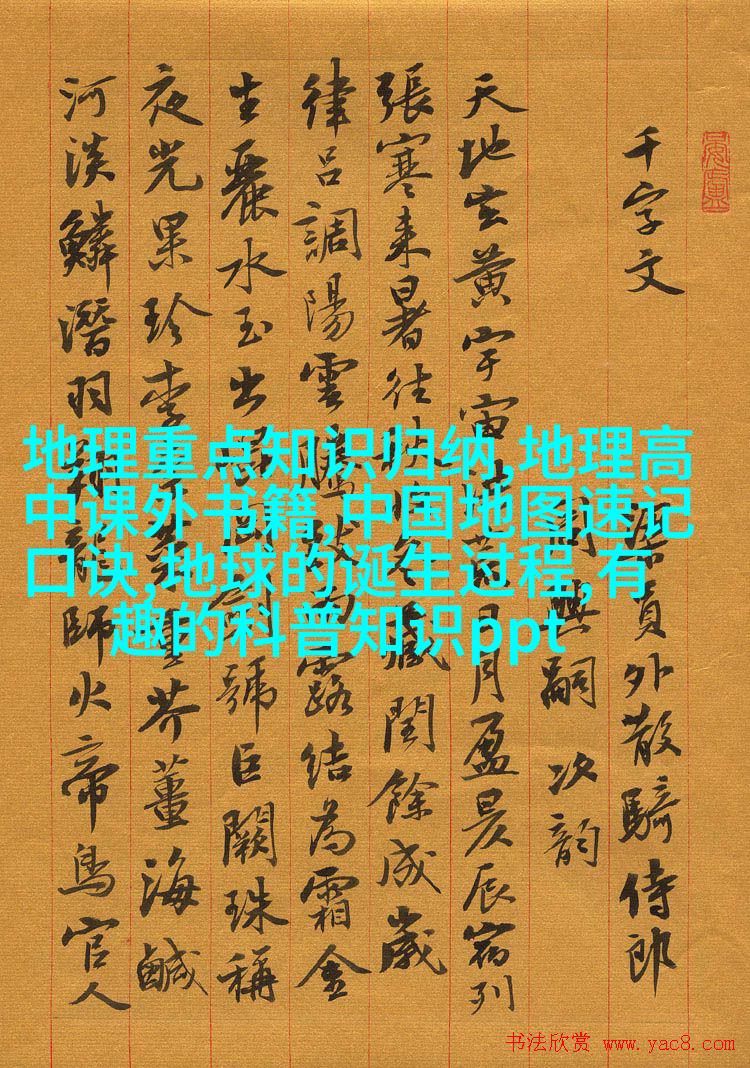 千字文
員外散騎侍郎
周興嗣次韵
天地玄黄宇宙洪荒日月盈昃辰宿列
張寒来暑往秋收冬藏閏餘成歲
律吕調陽雲騰致雨露結為霜金
生麗水玉出崑岡劍號巨闕珠稱
夜光果珍李柰菜重芥薑海鹹
河淡鱗潛羽翔龍師火帝鳥官人
地理重点知识归纳,地理高
中课外书籍,中国地图速记
口诀,地球的诞生过程,有
趣的科普知识ppt
书法欣赏 www.yac8.com